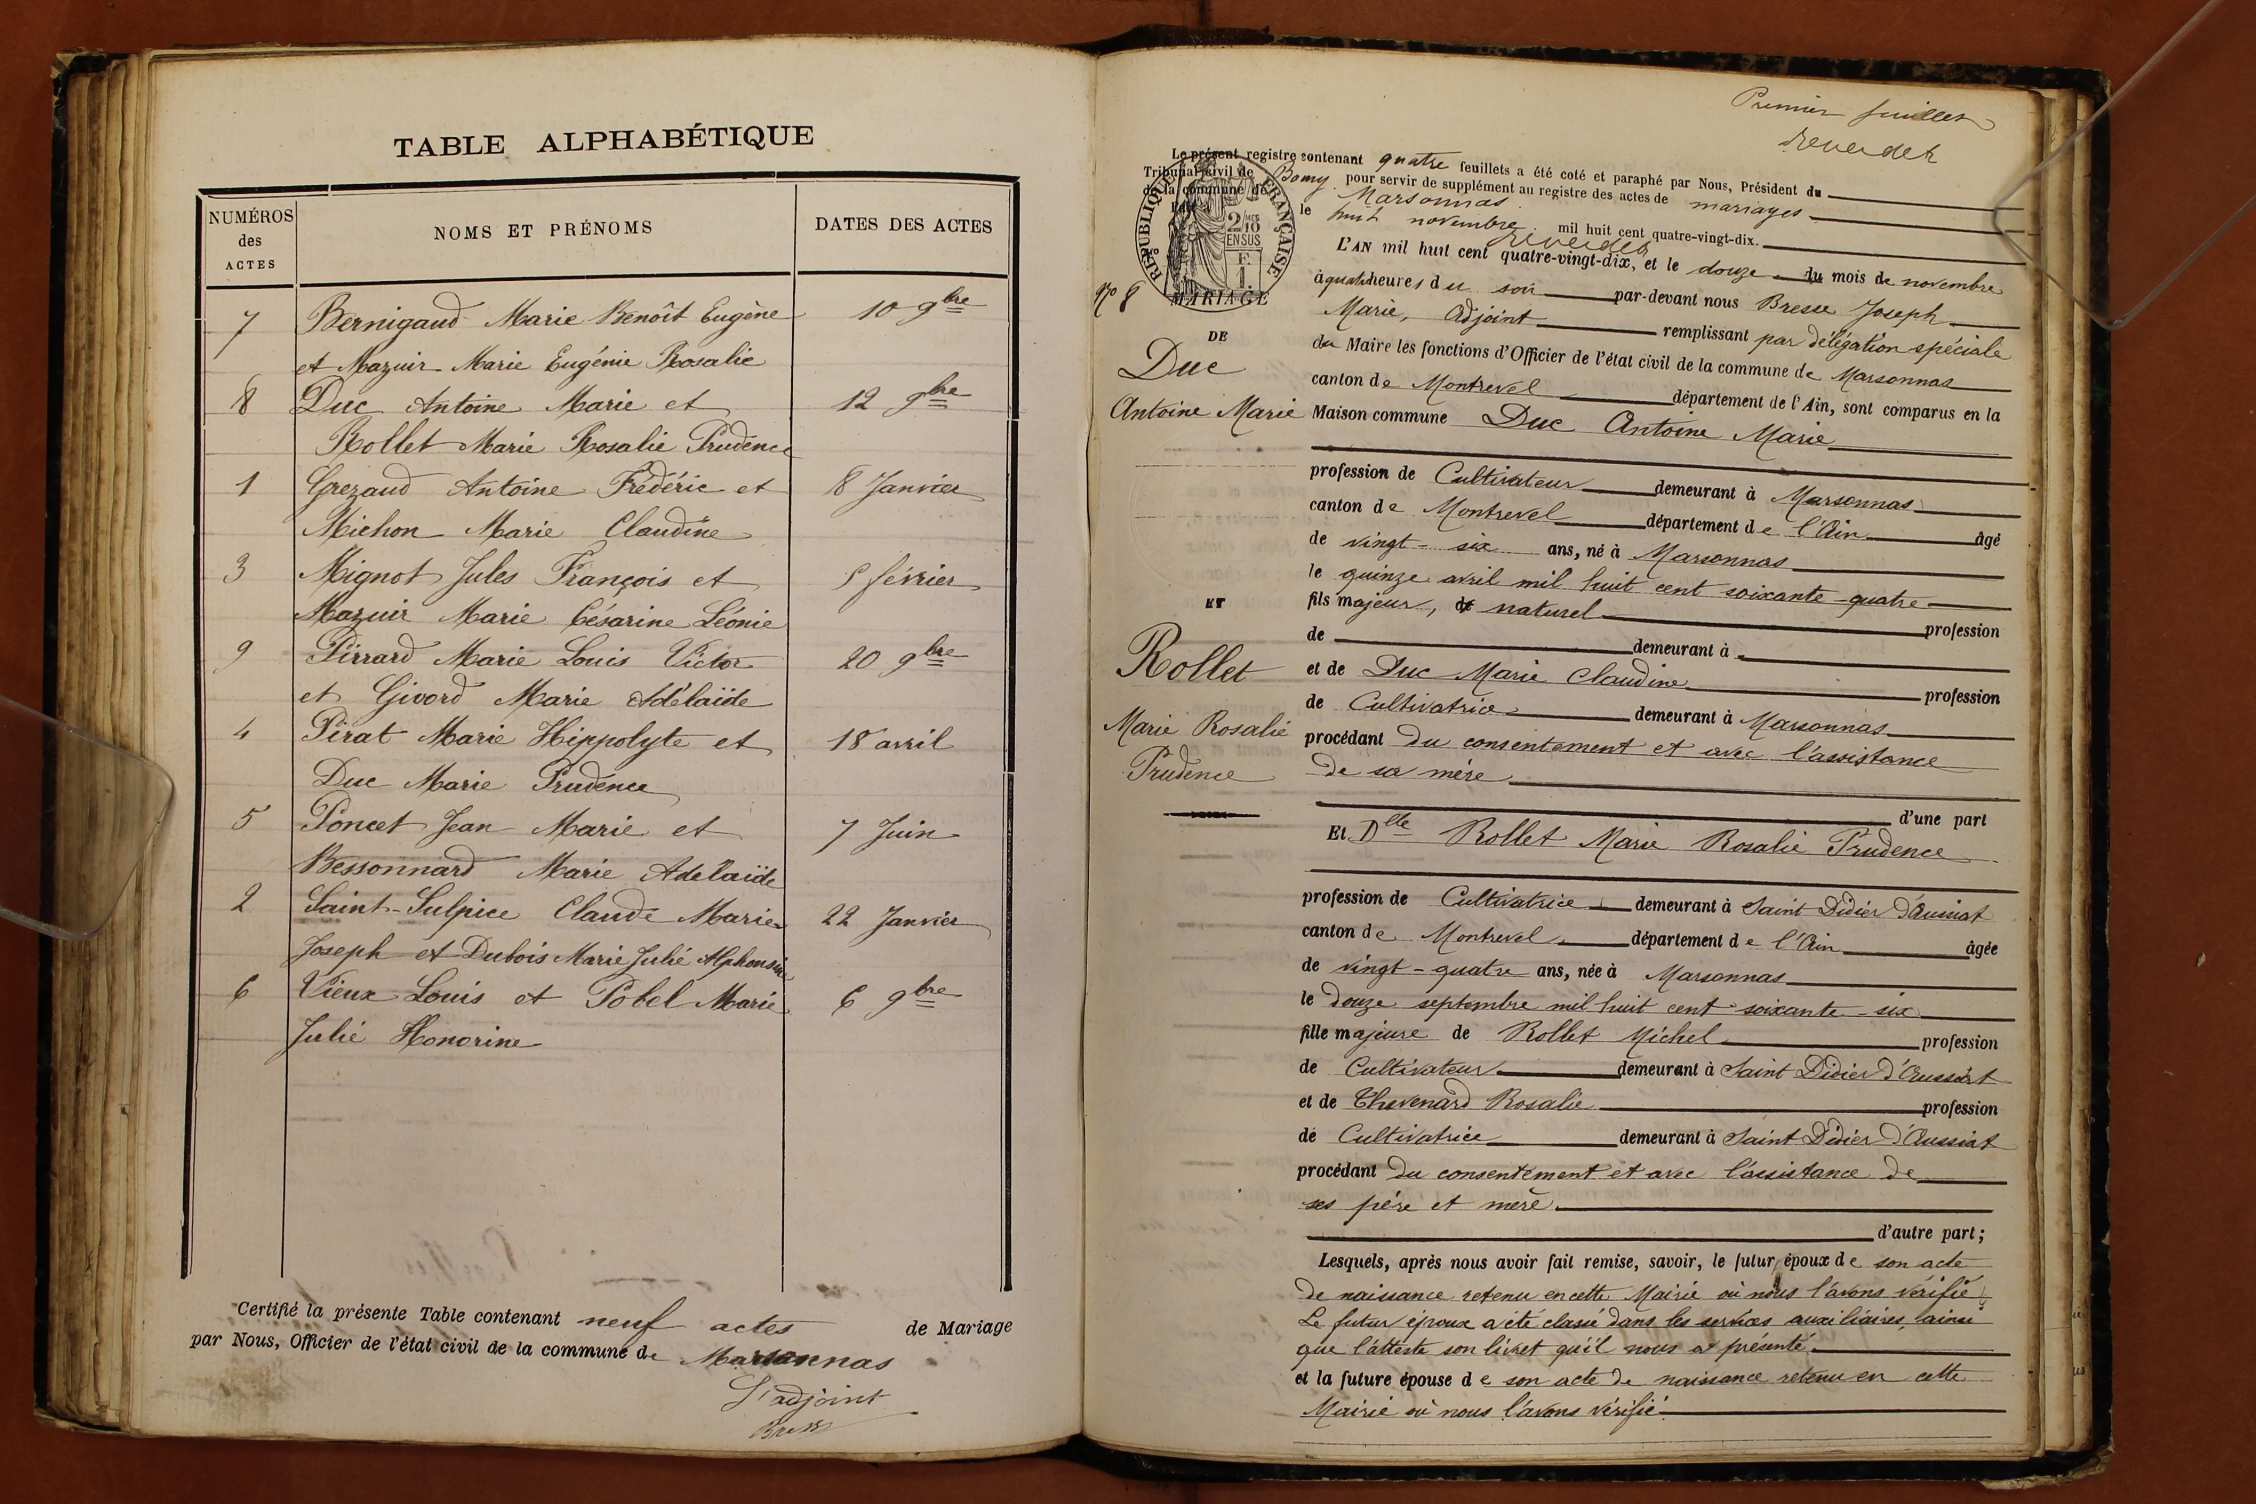 TABLE ALPHABÉTIQUE
NUMÉROS des ACTES
NOMS ET PRÉNOMS
DATES DES ACTES
7 Bernigaud Marie Benoît Eugène 10 9bre
et Mazuir Marie Eugénie Rosalie
8 Duc Antoine Marie et 12 9bre
Rollet Marie Rosalie Prudence
1 Grezaud Antoine Frédéric et 8 Janvier
Michon Marie Claudine
3 Mignot Jules François et 5 février
Mazuir Marie Césarine Léonie
9 Pirrard Marie Louis Victor 20 9bre
et Givord Marie Adélaïde
4 Pirat Marie Hippolyte et 18 avril
Duc Marie Prudence
5 Poncet Jean Marie et 7 Juin
Bessonnard Marie Adélaïde
2 Saint-Sulpice Claude Marie 22 Janvier
Joseph et Dubois Marie Julie Alphonsine
6 Vieux Louis et Pobel Marie 6 9bre
Julie Honorine
Certifié la présente Table contenant neuf actes de Mariage
par Nous, Officier de l'état civil de la commune de Marsonnas
L'adjoint
Premier feuillet
Le présent registre contenant quatre feuillets a été coté et paraphé par Nous, Président du
Tribunal civil de pour servir de supplément au registre des actes de mariages
de la commune de Marsonnas
le huit novembre mil huit cent quatre-vingt-dix.
RÉPUBLIQUE FRANÇAISE
2/10 EN SUS
F. 1.
MARIAGE
L'AN mil huit cent quatre-vingt-dix, et le douze du mois de novembre
No 8
à quatre heures du soir par-devant nous Bresse Joseph
Marie, Adjoint remplissant par délégation spéciale
DE
du Maire les fonctions d'Officier de l'état civil de la commune de Marsonnas
Duc
canton de Montrevel département de l'Ain, sont comparus en la
Antoine Marie
Maison commune Duc Antoine Marie
profession de Cultivateur demeurant à Marsonnas
canton de Montrevel département de l'Ain âgé
de vingt-six ans, né à Marsonnas
le quinze avril mil huit cent soixante-quatre
ET
fils majeur, naturel profession
de demeurant à
Rollet
et de Duc Marie Claudine profession
de Cultivatrice demeurant à Marsonnas
Marie Rosalie
procédant du consentement et avec l'assistance
Prudence
de sa mère
d'une part
Et Dlle Rollet Marie Rosalie Prudence
profession de Cultivatrice demeurant à Saint Didier d'Aussiat
canton de Montrevel département de l'Ain âgée
de vingt-quatre ans, née à Marsonnas
le douze septembre mil huit cent soixante-six
fille majeure de Rollet Michel profession
de Cultivateur demeurant à Saint Didier d'Aussiat
et de Thevenard Rosalie profession
de Cultivatrice demeurant à Saint Didier d'Aussiat
procédant du consentement et avec l'assistance de
ses père et mère
d'autre part;
Lesquels, après nous avoir fait remise, savoir, le futur époux de son acte
de naissance retenu en cette Mairie où nous l'avons vérifié
Le futur époux a été classé dans les services auxiliaires, ainsi
que l'atteste son livret qu'il nous a présenté.
et la future épouse de son acte de naissance retenu en cette
Mairie où nous l'avons vérifié